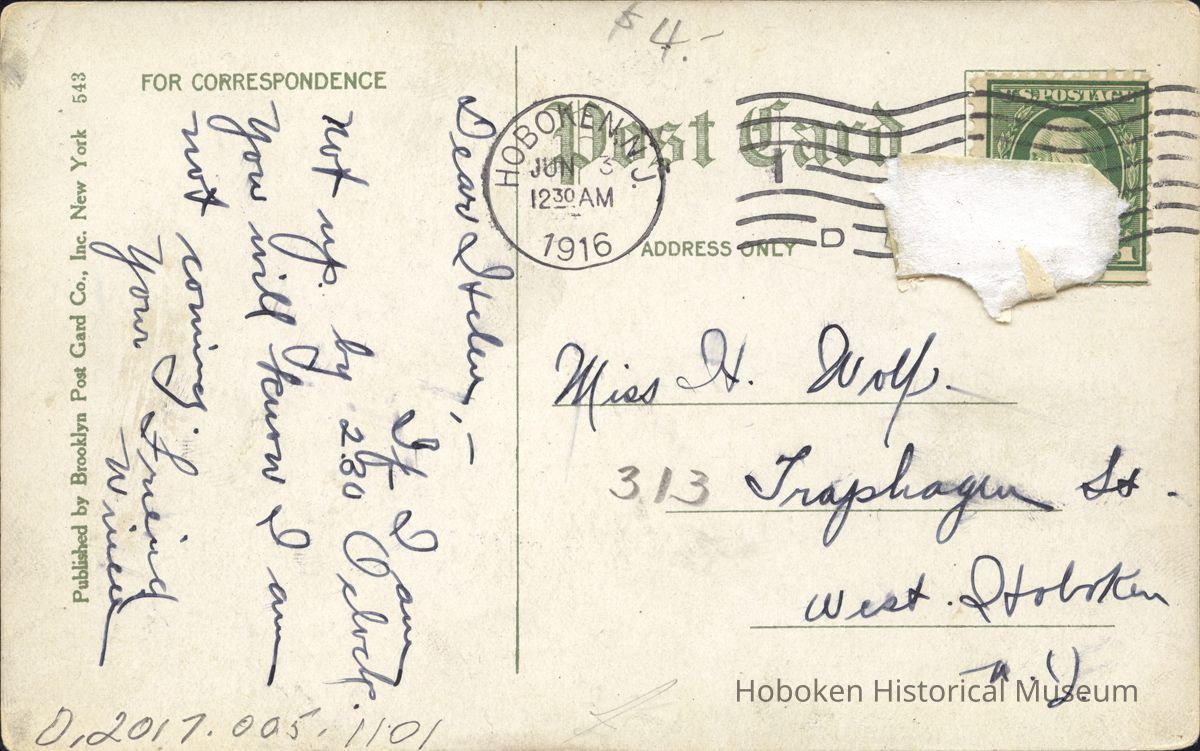 $4.-
FOR CORRESPONDENCE
Post Card
ADDRESS ONLY
HOBOKEN, N.J.
JUN 3
12 30 AM
1916
D
U.S. POSTAGE
1
Dear Helen,-
If I am
not up by 2.30 Oclock.
You will know I am
not coming.
Your Friend
Miss H. Wolf.
313 Traphagen St.
West. Hoboken
N.J.
Published by Brooklyn Post Card Co., Inc. New York 543
Hoboken Historical Museum
D,2017.005.1101